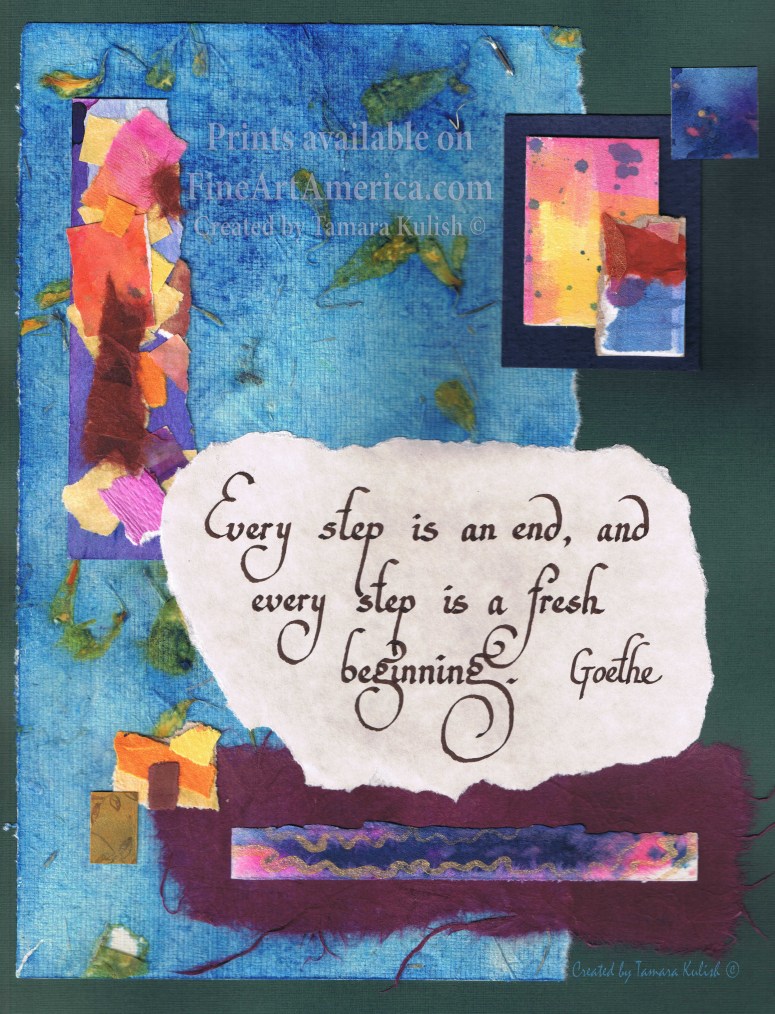 Prints available on
FineArtAmerica.com
Created by Tamara Kulish ©
Every step is an end, and
every step is a fresh
beginning. Goethe
Created by Tamara Kulish ©